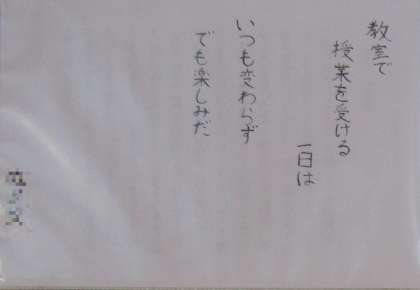 教室で
授業を受ける
一日は
いつも変わらず
でも楽しみだ